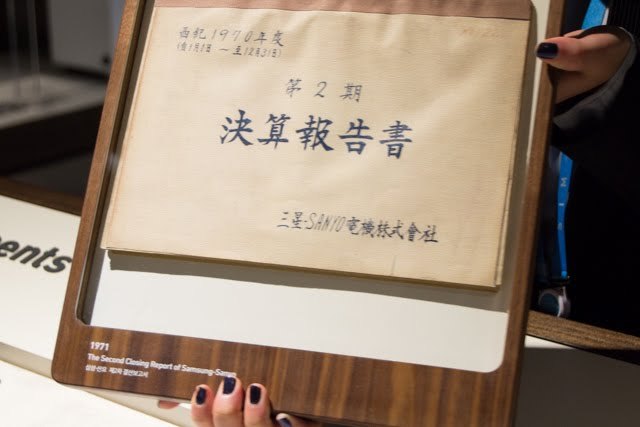 西紀1970年度
(自1月1日 ~ 至12月31日)
第2期
決算報告書
三星·SANYO電機株式會社
ents
1971
The Second Closing Report of Samsung-Sanyo
삼성-산요 제2차 결산보고서